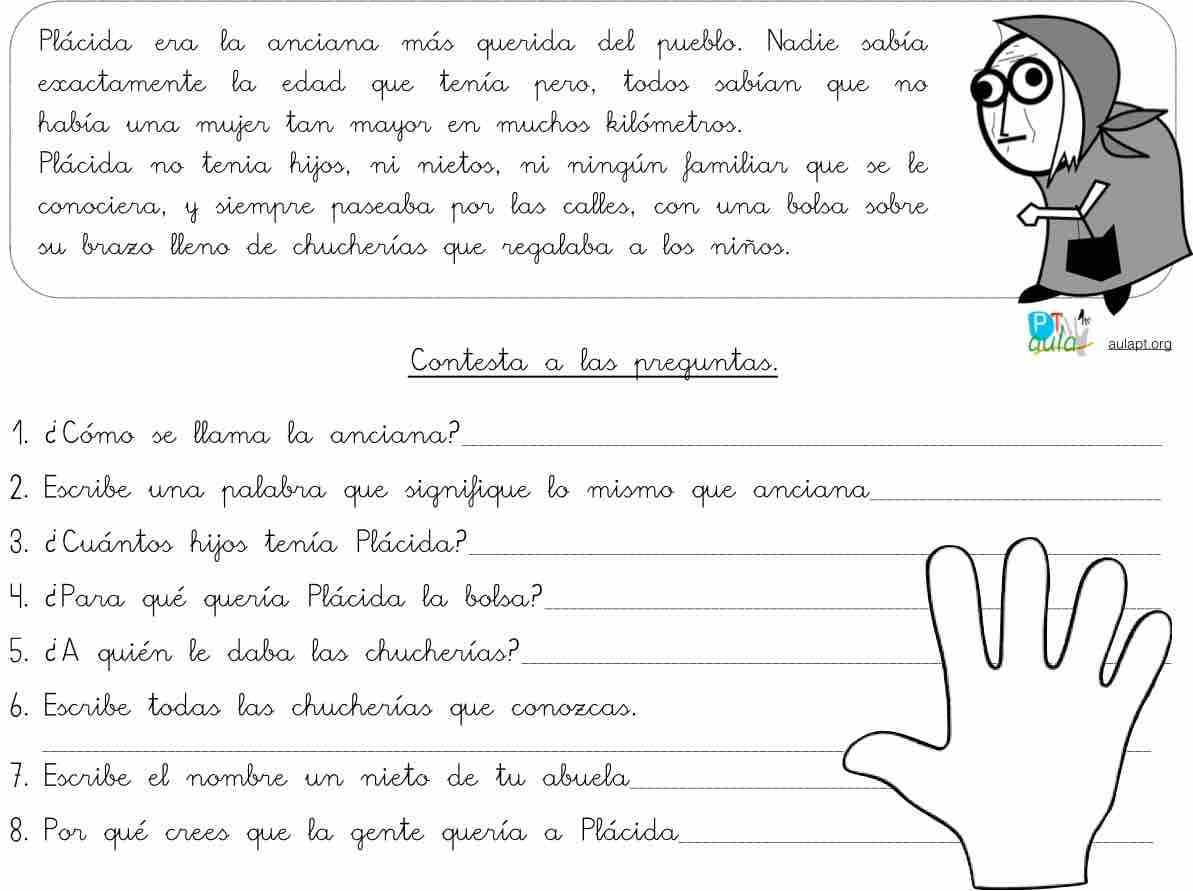 Plácida era la anciana más querida del pueblo. Nadie sabía
exactamente la edad que tenía pero, todos sabían que no
había una mujer tan mayor en muchos kilómetros.
Plácida no tenia hijos, ni nietos, ni ningún familiar que se le
conociera, y siempre paseaba por las calles, con una bolsa sobre
su brazo lleno de chucherías que regalaba a los niños.
PT
aula
aulapt.org
Contesta a las preguntas.
1. ¿Cómo se llama la anciana?
2. Escribe una palabra que signifique lo mismo que anciana
3. ¿Cuántos hijos tenía Plácida?
4. ¿Para qué quería Plácida la bolsa?
5. ¿A quién le daba las chucherías?
6. Escribe todas las chucherías que conozcas.
7. Escribe el nombre un nieto de tu abuela
8. Por qué crees que la gente quería a Plácida